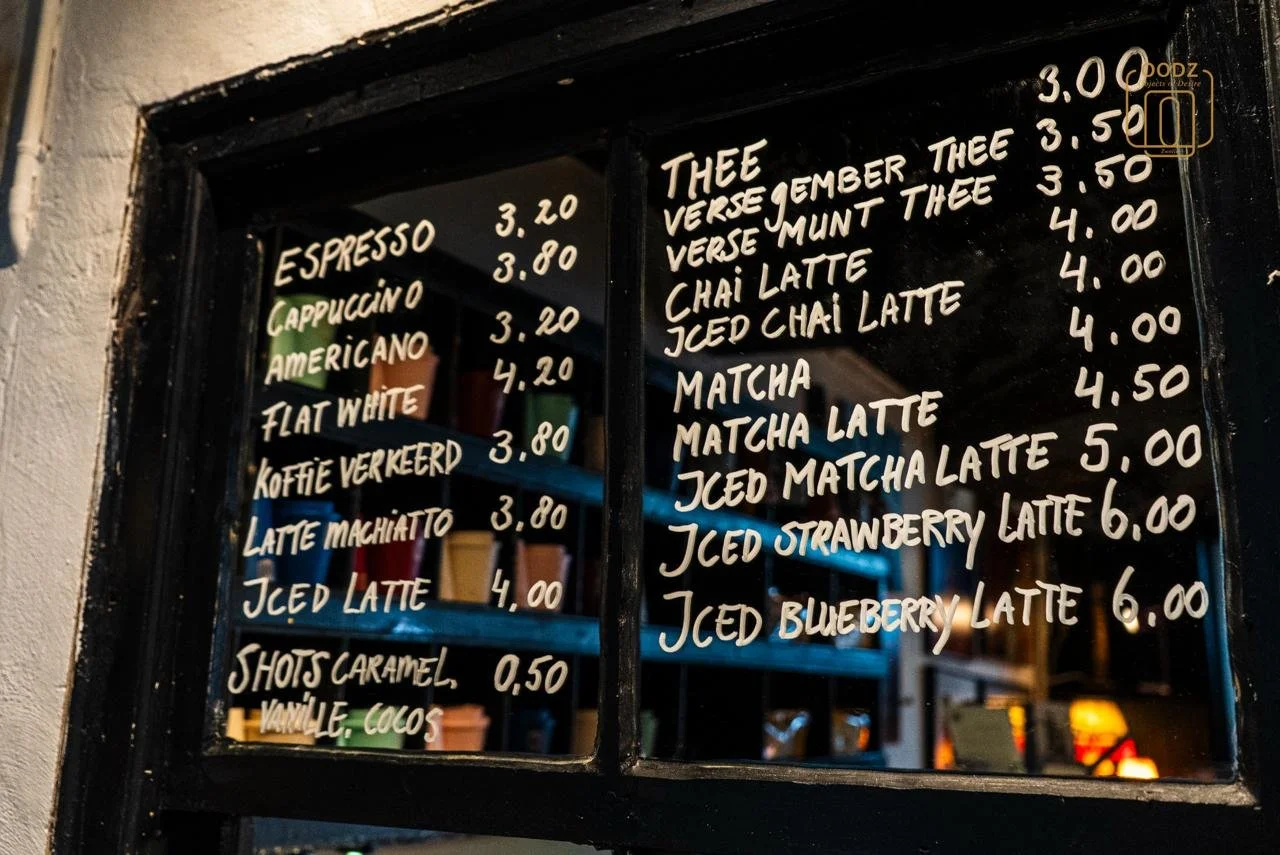 ESPRESSO 3.20
CAPPUCCINO 3.80
AMERICANO 3.20
FLAT WHITE 4.20
KOFFIE VERKEERD 3.80
LATTE MACHIATTO 3.80
ICED LATTE 4,00
SHOTS CARAMEL, 0,50
VANILLE, COCOS
THEE 3.00
VERSE gEMBER THEE 3.50
VERSE MUNT THEE 3.50
CHAi LATTE 4.00
ICED CHAi LATTE 4.00
MATCHA 4.00
MATCHA LATTE 4.50
ICED MATCHA LATTE 5,00
ICED STRAWBERRY LATTE 6,00
ICED BLUEBERRY LATTE 6,00
OODZ
Objects of Desire